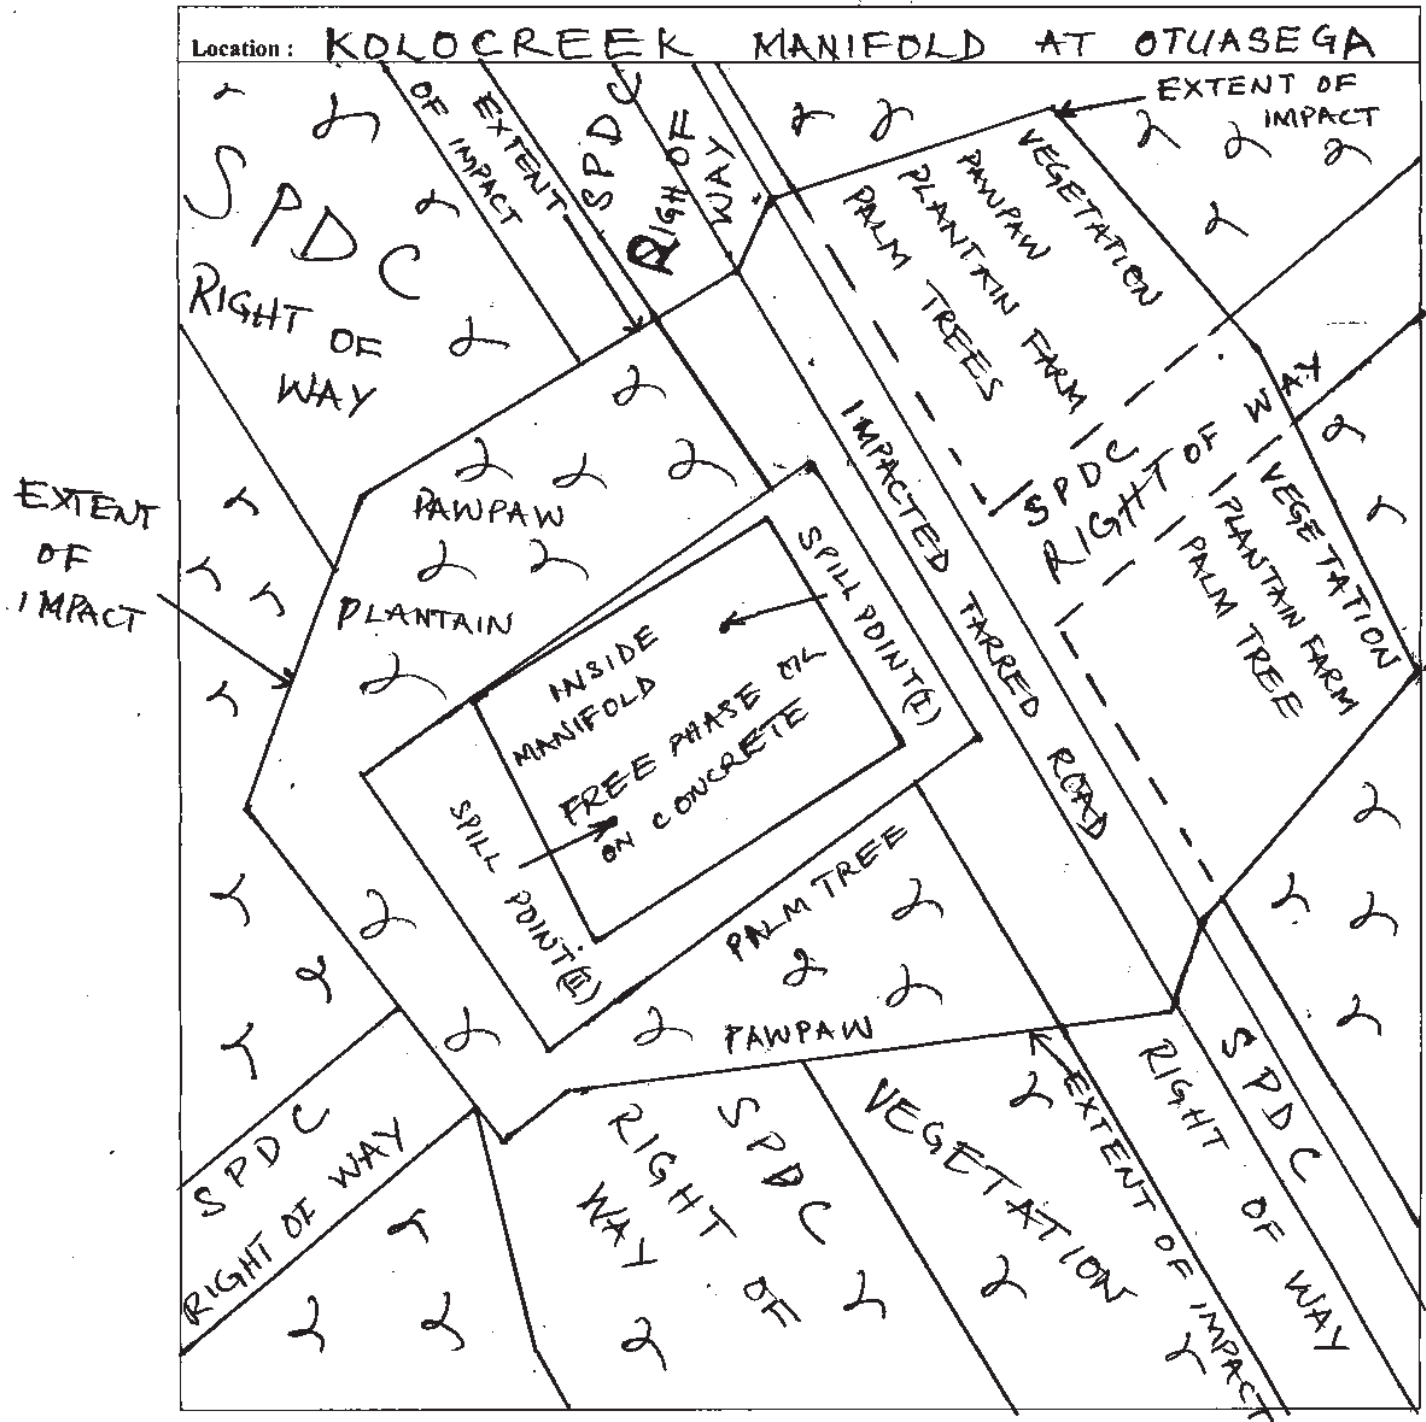 Location : KOLOCREEK MANIFOLD AT OTUASEGA
EXTENT
OF IMPACT
SPDC
RIGHT OF
WAY
EXTENT OF
IMPACT
SPDC
RIGHT
OF
WAY
VEGETATION
PAWPAW
PLANTAIN FARM
PALM TREES
IMPACTED TARRED ROAD
SPDC
RIGHT OF WAY
VEGETATION
PLANTAIN FARM
PALM TREE
EXTENT
OF
IMPACT
PAWPAW
PLANTAIN
SPILL POINT (I)
INSIDE
MANIFOLD
FREE PHASE OIL
ON CONCRETE
SPILL POINT (II)
PALM TREE
PAWPAW
SPDC
RIGHT OF WAY
SPDC
RIGHT OF
WAY
VEGETATION
EXTENT OF IMPACT
SPDC
RIGHT OF WAY